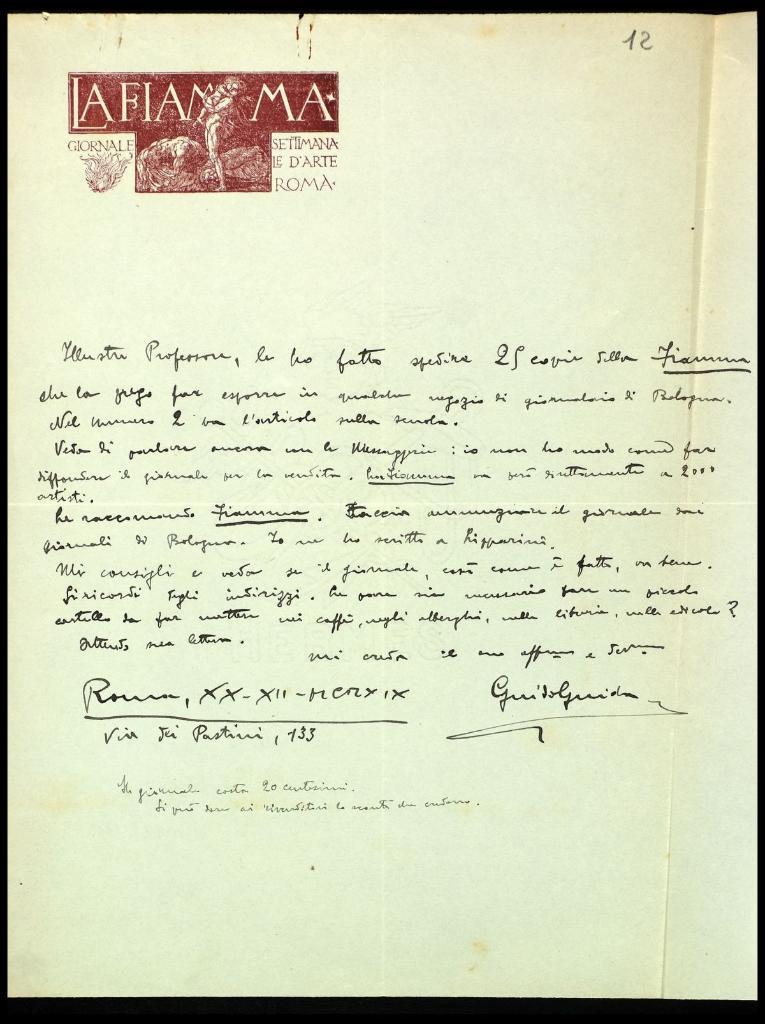 12
LA FIAMMA
GIORNALE SETTIMANA
LE D'ARTE
ROMA
Illustre Professore, le ho fatto spedire 25 copie della Fiamma
che la prego far esporre in qualche negozio di giornalaio di Bologna.
Nel numero 2 va l'articolo sulla scuola.
Veda di parlare ancora con le Messaggerie: io non ho modo come far
diffondere il giornale per la vendita. La Fiamma va però direttamente a 2000
artisti.
Le raccomando Fiamma. Faccia annunziare il giornale dai
giornali di Bologna. Io ne ho scritto a Lipparini.
Mi consigli e veda se il giornale, così come è fatto, va bene.
Si ricordi degli indirizzi. Le pare sia necessario fare un piccolo
cartello da far mettere nei caffè, negli alberghi, nelle librerie, nelle edicole?
Attendo sua lettera.
Mi creda il suo affmo e devmo
Roma, XX-XII-MCMXIX GuidoGuida
Via dei Pastini, 133
Il giornale costa 20 centesimi.
Si può dare ai rivenditori lo sconto che credono.